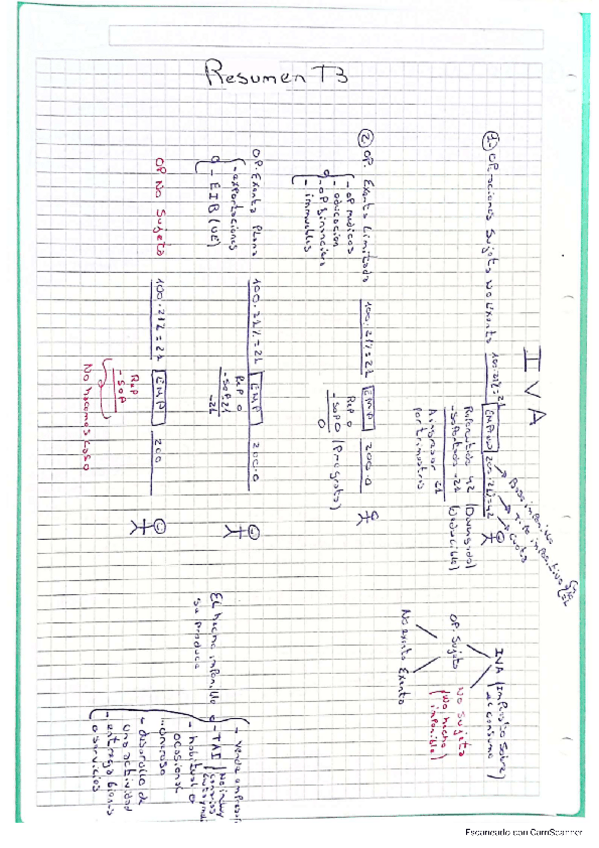 Resumen T3
IVA
1- Operaciones Sujeta No Exenta
100·21%=21
EMP
200·21%=42
Base imponible
Tipo impositivo
Cuota
Repercutido 42 (Devengado)
- Soportado -21 (Deducible)
A ingresar 21
por trimestre
2 OP. Exenta Limitada
- op medicas
- educacion
- op financieras
- inmuebles
100·21%=21
EMP
200·0
Rep 0
-Sop 0
0
(Prorrata)
OP. Exenta Plena
- exportaciones
- EIB (UE)
100·21%=21
EMP
200·0
Rep 0
-Sop 21
-21
OP No Sujeta
100·21%=21
EMP
200
Rep
-Sop
No hacemos caso
IVA (Impuesto sobre el consumo)
OP. Sujeta
No Sujeta
(No hecho
imponible)
No exenta
Exenta
El hecho imponible
se produce
- TAI
- habitual o
ocasional
- oneroso
- desarrollo de
una actividad
- entrega bienes
o servicios
Escaneado con CamScanner